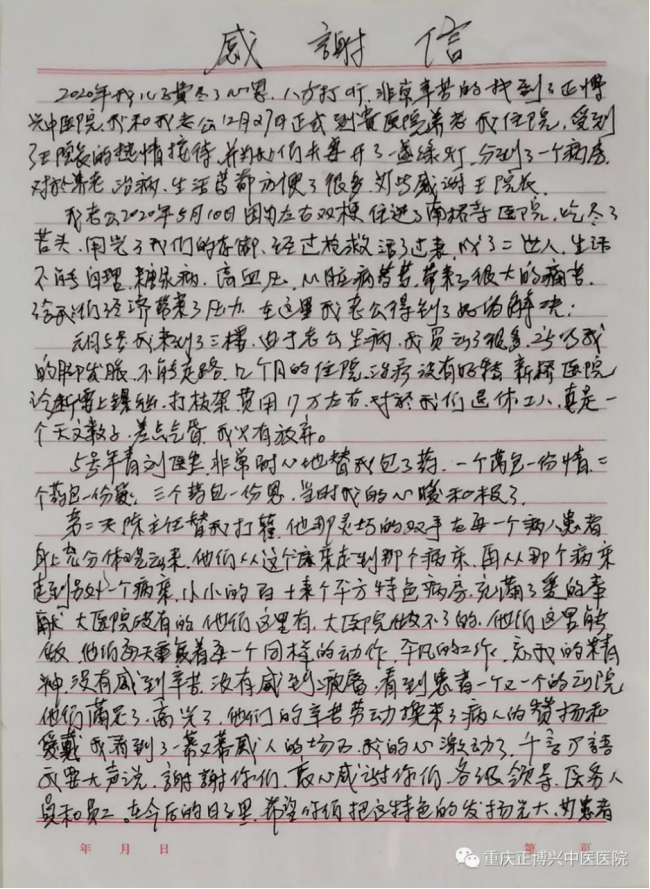 感謝信
2020年我儿子費尽了心思，八方打听，非常辛苦的找到了正博
兴中医院，我和我老公12月27日正式到貴医院养老，我住院，受到
了王院长的热情接待，并为我们夫妻开了一盏绿灯，分到了一个病房，
对於养老、治病、生活等都方便了很多，感谢王院长
我老公2020年5月10日因为左右双梗住进了南桥寺医院，吃尽了
苦头，用光了我们的存款，经过抢救活了过来，成了二世人，生活
不能自理，糖尿病，高血压，心脏病等等，带来了很大的痛苦，
给我们经济带来了压力，在这里我老公得到了好的解决；
元月5号我来到了三楼，由于老公生病，我劳动了很多，我
的脚发胀，不能走路，几个月的住院，治疗没有好转，新桥医院
诊断要上螺丝，打枝架，费用17万左右，对於我们退休工人，真是一
个天文数子，差点气昏，我只有放弃。
5号年青刘医生，非常耐心地替我包了药，一个药包一份情，二
个药包一份爱，三个药包一份恩，当时我的心暖和极了。
第二天陈主任替我打，他那灵巧的双手在每一个病人患者
身上充分体现出来，他们从这个病床走到那个病床，再从那个病床
走到另外一个病床，小小的百十来个平方特色病房，充满了爱的奉
献，大医院没有的，他们这里有，大医院做不了的，他们这里能
做，他们每天重复着每一个同样的动作，平凡的工作，忘我的精
神，没有感到辛苦，没有感到疲倦，看到患者一个又一个的出院
他们满足了，高兴了，他们的辛苦劳动换来了病人的赞扬和
爱戴，我看到了一幕又幕感人的场面，我的心激动了，千言万語
我要大声说，謝謝你们，衷心感谢你们，各级领导，医务人
员和员工。在今后的日子里，希望你们把这特色的发扬光大，为患者
年 月 日 第 頁
重庆正博兴中医医院